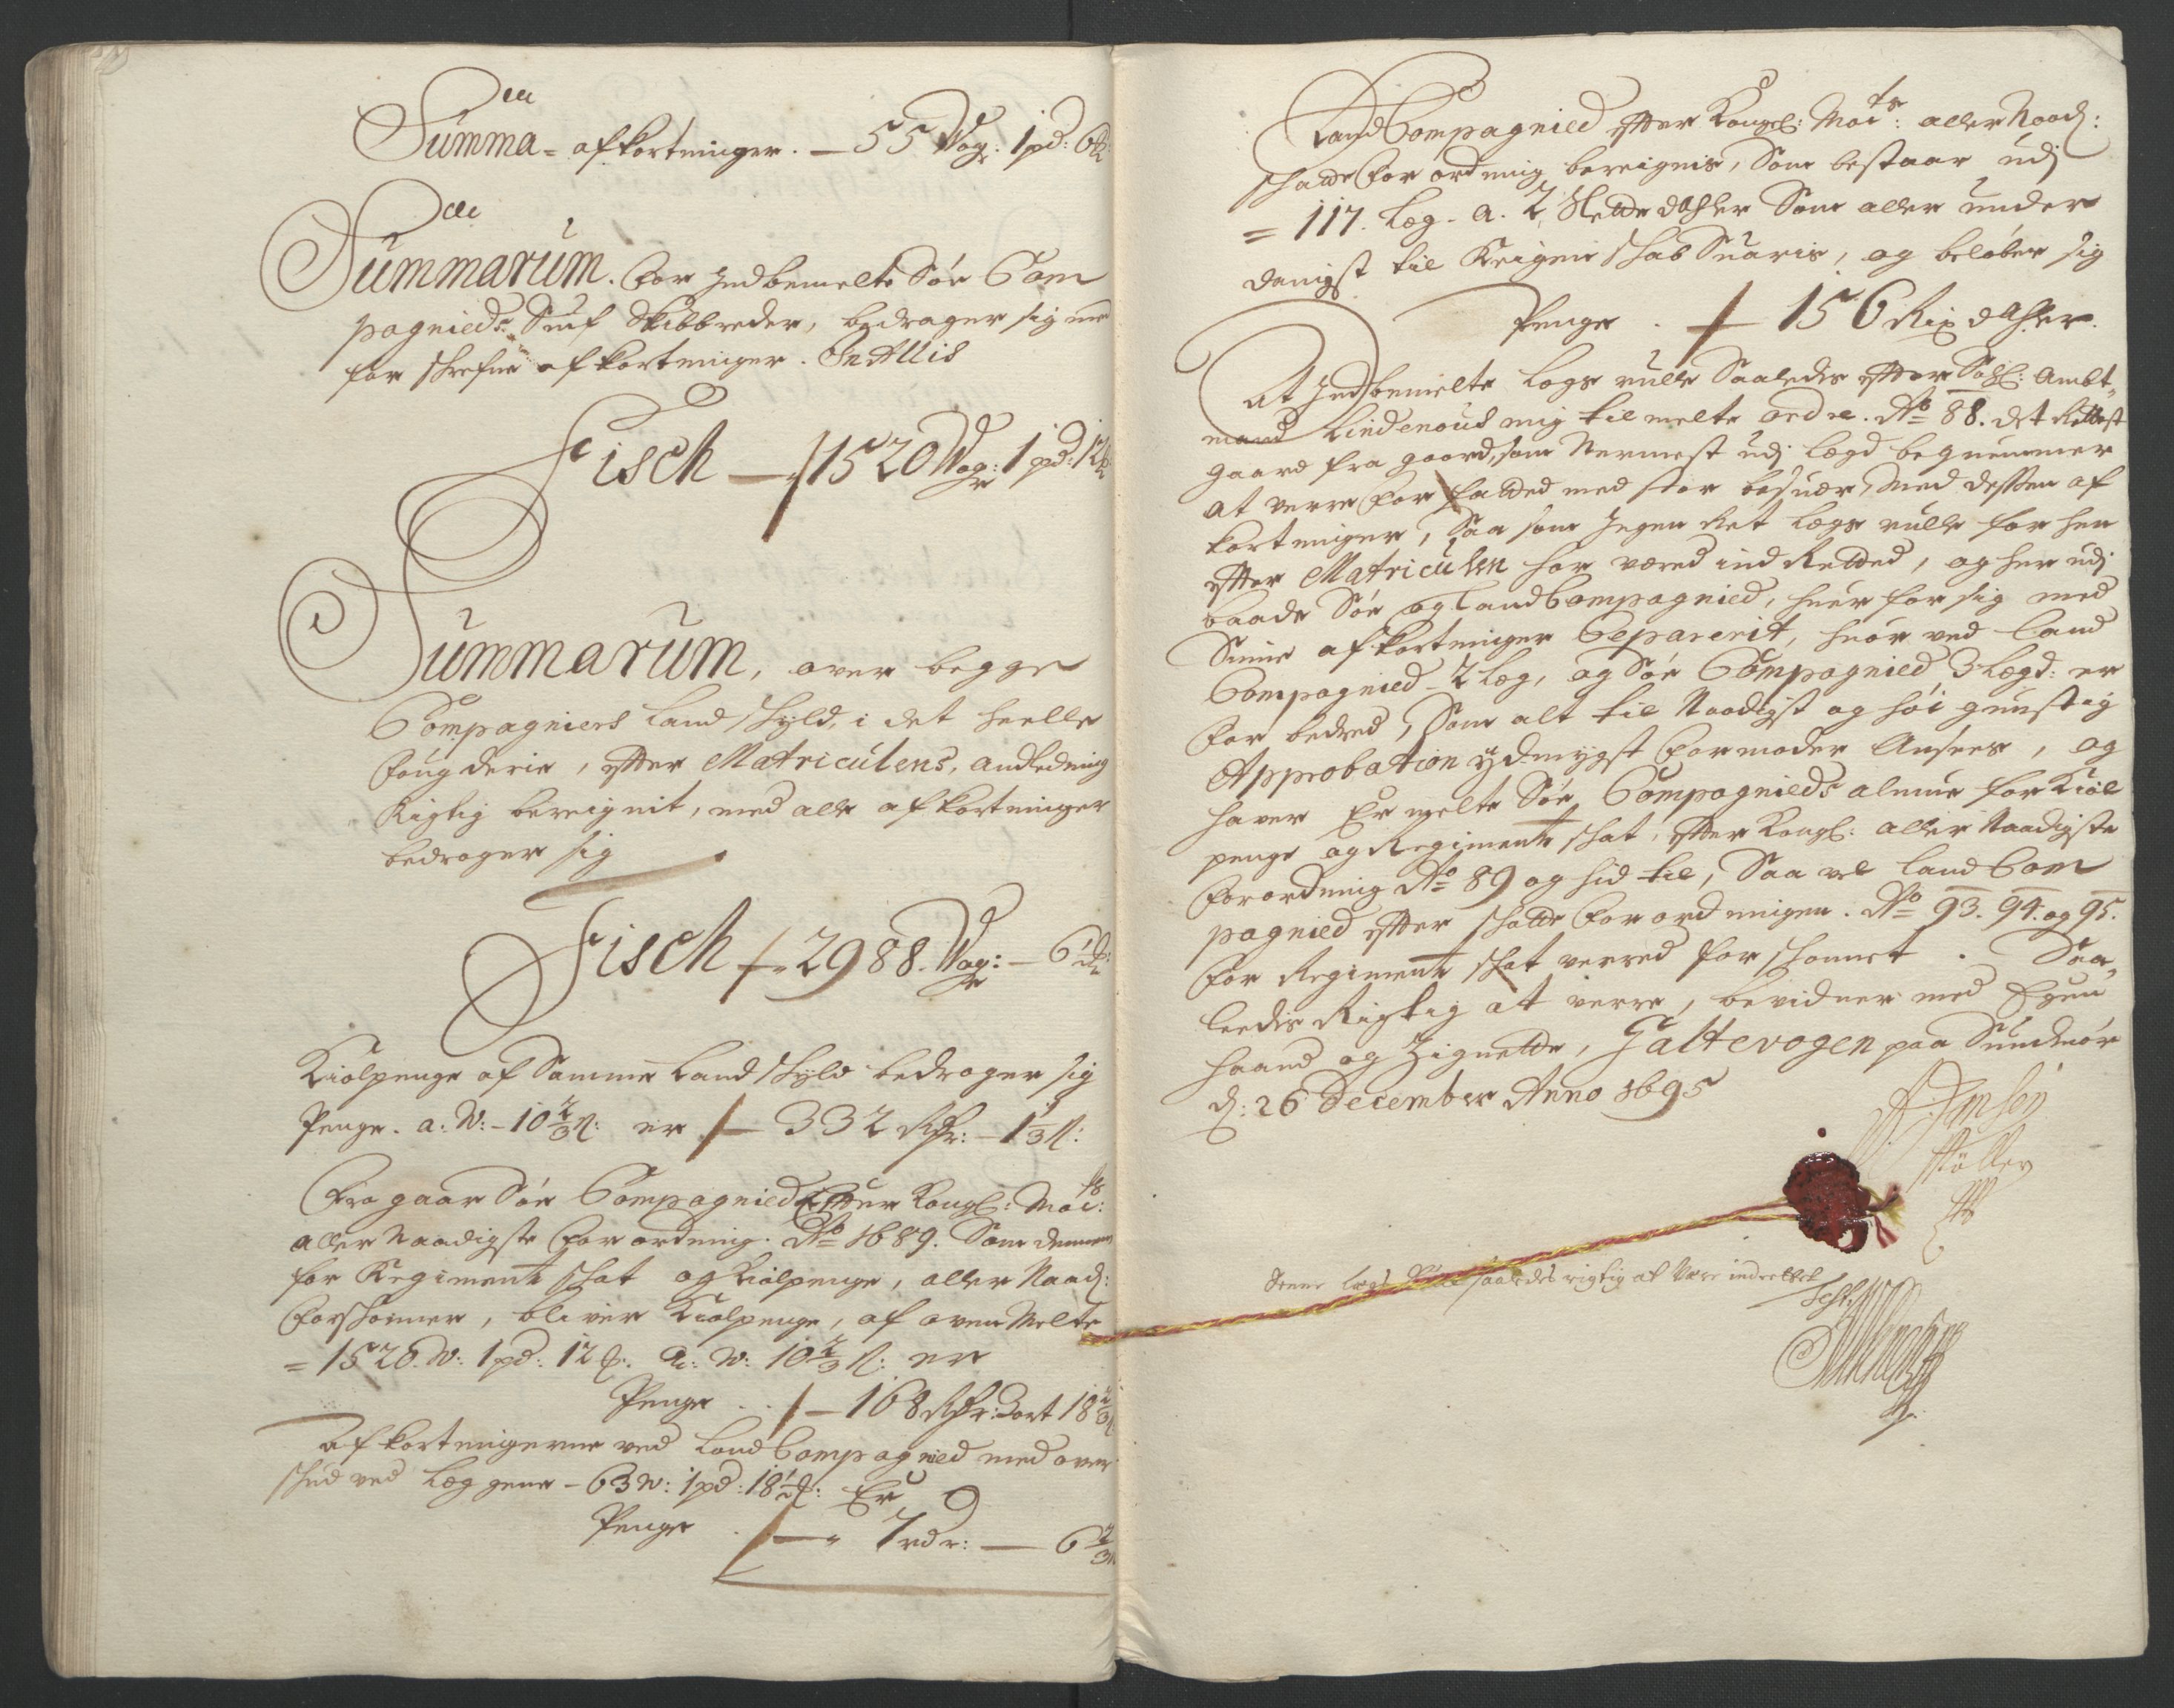 Summa afkortninger. — 55 Wog: 1 pd: 6
Summarum. for Indbemelte Söe Com
pagnieds Siuf Skibbreder, bedrager sig med
for schrefne afkortninger. In Allis
Fisch — 1520 Wog: 1 pd: 12
Summarum, over begge
Compagniers Land schyld, i det heelle
fougderie, efter Matriculens, andledning
Rigtig bereignit, med alle afkortninger
bedrager sig
Fisch — 2988. Wog: — 6
Kiölpenge af Samme Land schyld bedrager sig
Penge. a: W: - 10 2/3 s: er — 332 Rdr: - 1 1/3 s:
Fragaar Söe Compagnied Efter Kongl: Maits:
aller Naadigste forordning. Ao 1689. Som dennem
for Regiments schat og Kiölpenge, aller Naad:
forschoner, bliver Kiölpenge, af oven Melte
= 1520. W: 1 pd: 12 a: W: 10 2/3 s: er
Penge .. — 168 Rdr: 3 ort 18 2/3
afkortningerne ved Land Compagnied med over
schud ved Læggene - 63 W: 1 pd: 18 Er
Penge . — 7 rdr: — 6 2/3
Land Compagnied efter Kongel: Maits: aller Naad:
schatte forordning bereignis, Som bestaar udj
= 117. Læg - a. 2 Slette daler Som aller under
danigst til Krigenschab Suaris, og beløber sig
Penge . — 156 Rix daler.
At Indbemelte Legs rulle Saaledis efter Sahl: Ambt-
mand Lindenous mig tilmelte ordre. Ao 88. det Rettest
gaard fra gaard, som Nermest udj Legd beqvemmer
at verre for fatted med stor besuer, Med dessen af
kortninger, Saa som Ingen Ret Legs rulle for hen
efter Matriculen har værred ind Retted, og her udj
baade Söe og Land Compagnied, huer for sig med
Sinne afkortninger Separerit, huor ved Land
Compagnied - 2 Læg, og Söe Compagnied 3 Legd: er
forbedred, Som alt til Naadigst og höi gunstig
Approbation ydmygst formoder Ansees, og
haver Er melte Söe Compagnieds almue for Kiöl
penge og Regiments schat, efter Kongl: aller Naadigste
forordning Ao 89 og hid til, Saa vel Land Com
pagnied efter schatte forordningen. Ao 93. 94. og 95.
for Regiments schat verred forschonnet . Saa-
leedis Rigtig at verre, bevidner med Egen
haand og Zignette, Galtevogen paa Sundmör
d: 26 December Anno 1695
Denne Legs saaledes rigtig at Være indrettet